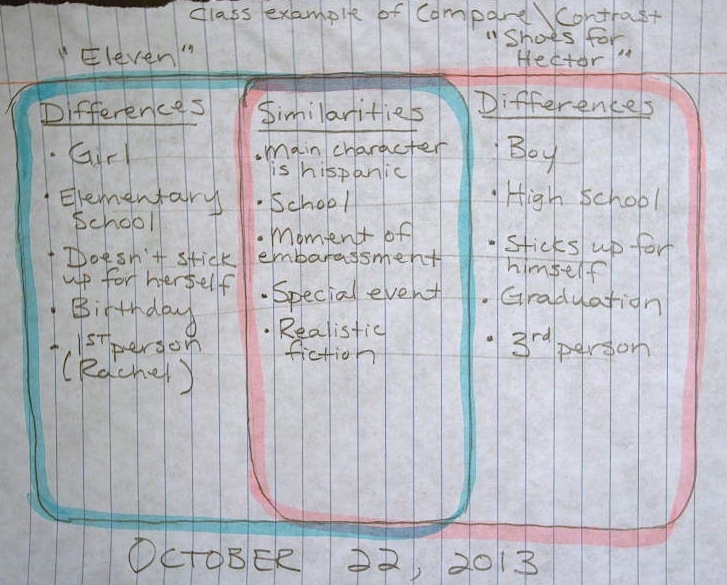 Class example of Compare\Contrast
"Eleven"
"Shoes for
Hector"
Differences
• Girl
• Elementary
School
• Doesn't stick
up for herself
• Birthday
• 1ST person
(Rachel)
Similarities
• Main character
is hispanic
• School
• Moment of
embarassment
• Special event
• Realistic
fiction
Differences
• Boy
• High school
• Sticks up for
himself
• Graduation
• 3rd person
OCTOBER 22, 2013